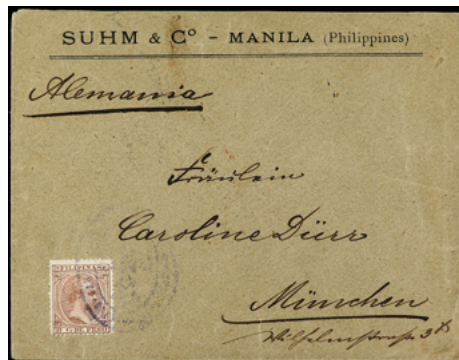 SUHM & Cº - MANILA (Philippines)
Alemania
Fräulein
Caroline Dürr
München
Wilhelmstraße
FILIPINAS